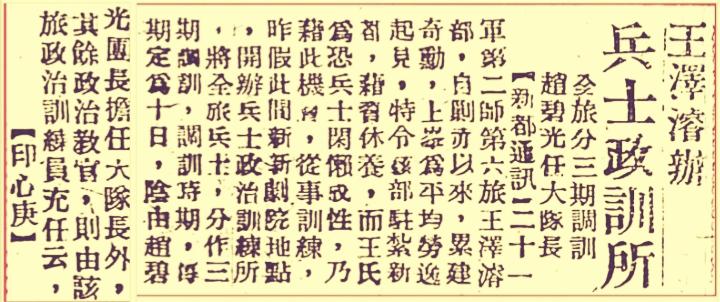 王澤濬辦
兵士政訓所
全旅分三期調訓
趙碧光任大隊長
【新都通訊】二十一
軍第二師第六旅王澤濬
部，自剿赤以來，累建
奇勳，上峯為平均勞逸
起見，特令該部駐紮新
都，藉資休養，而王氏
為恐兵士閑懶成性，乃
藉此機會，從事訓練，
昨假此間新新劇院地點
，開辦兵士政治訓練所
，將全旅兵士，分作三
期調訓，調訓時期，每
期定為十日，除由趙碧
光團長擔任大隊長外，
其餘政治教官，則由該
旅政治訓練員充任云，
【印心庚】